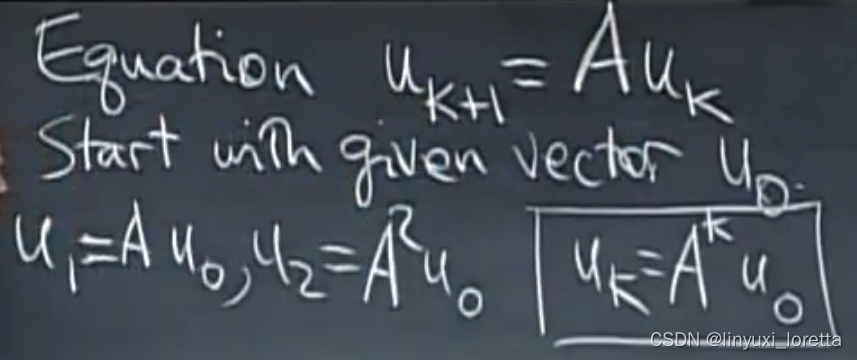 Equation u_{k+1} = A u_k
Start with given vector u_0.
u_1 = A u_0, u_2 = A^2 u_0
u_k = A^k u_0
CSDN @linyuxi_loretta